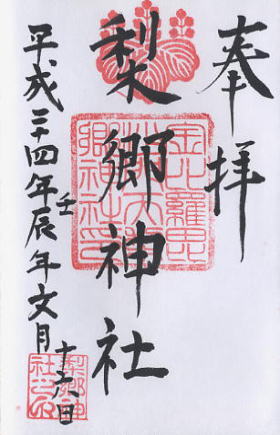 奉拝
梨郷神社
平成二十四年壬辰年文月十六日
梨郷神
社之印